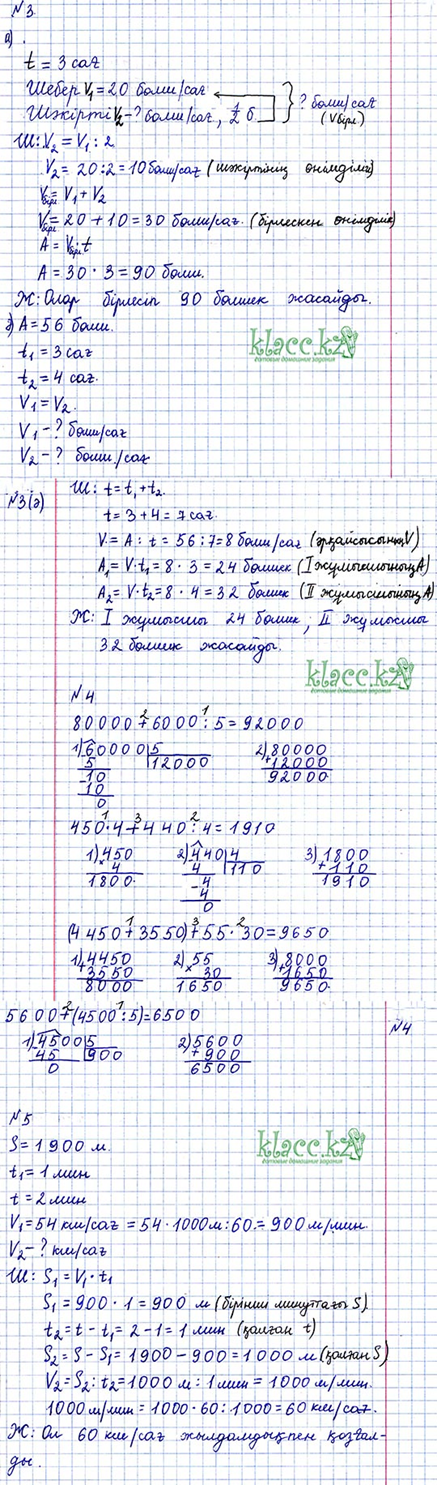 №3.
а)
t = 3 сағ
Шебер V₁ = 20 бөлш/сағ
Шәкірті V₂ - ? бөлш/сағ, 1/2 б. } ? бөлш/сағ (Vбірл)
Ш: V₂ = V₁ : 2
V₂ = 20 : 2 = 10 бөлш/сағ (шәкіртінің өнімділігі)
Vбірл = V₁ + V₂
Vбірл = 20 + 10 = 30 бөлш/сағ. (бірлескен өнімділік)
A = Vбірл · t
A = 30 · 3 = 90 бөлш.
Ж: Олар бірлесіп 90 бөлшек жасайды.
ә) A = 56 бөлш.
t₁ = 3 сағ
t₂ = 4 сағ.
V₁ = V₂.
V₁ - ? бөлш/сағ
V₂ - ? бөлш/сағ
klacc.kz
готовые домашние задания
№3(ә)
Ш: t = t₁ + t₂.
t = 3 + 4 = 7 сағ.
V = A : t = 56 : 7 = 8 бөлш/сағ (әрқайсысының V)
A₁ = V · t₁ = 8 · 3 = 24 бөлшек (I жұмысшының A)
A₂ = V · t₂ = 8 · 4 = 32 бөлшек (II жұмысшының A)
Ж: I жұмысшы 24 бөлшек, II жұмысшы
32 бөлшек жасайды.
klacc.kz
готовые домашние задания
№4
2 1
80000 + 6000 : 5 = 92000
1) 60000 | 5 2) 80000
5 | 12000 + 12000
10 92000
10
0
1 3 2
450 · 4 + 440 : 4 = 1910
1) 450 2) 440 | 4 3) 1800
4 4 | 110 + 110
1800. 4 1910
4
0
1 3 2
(4450 + 3550) + 55 · 30 = 9650
1) 4450 2) 55 3) 8000
+ 3550 30 + 1650
8000 1650 9650.
2 1
5600 + (4500 : 5) = 6500
№4
1) 4500 | 5 2) 5600
45 | 900 + 900
0 6500
№5
S = 1900 м.
t₁ = 1 мин
t = 2 мин
V₁ = 54 км/сағ = 54 · 1000 м : 60 = 900 м/мин.
V₂ - ? км/сағ
klacc.kz
готовые домашние задания
Ш: S₁ = V₁ · t₁
S₁ = 900 · 1 = 900 м (бірінші минуттағы S)
t₂ = t - t₁ = 2 - 1 = 1 мин (қалған t)
S₂ = S - S₁ = 1900 - 900 = 1000 м (қалған S)
V₂ = S₂ : t₂ = 1000 м : 1 мин = 1000 м/мин.
1000 м/мин = 1000 · 60 : 1000 = 60 км/сағ.
Ж: Ол 60 км/сағ жылдамдықпен қозғал-
ды.